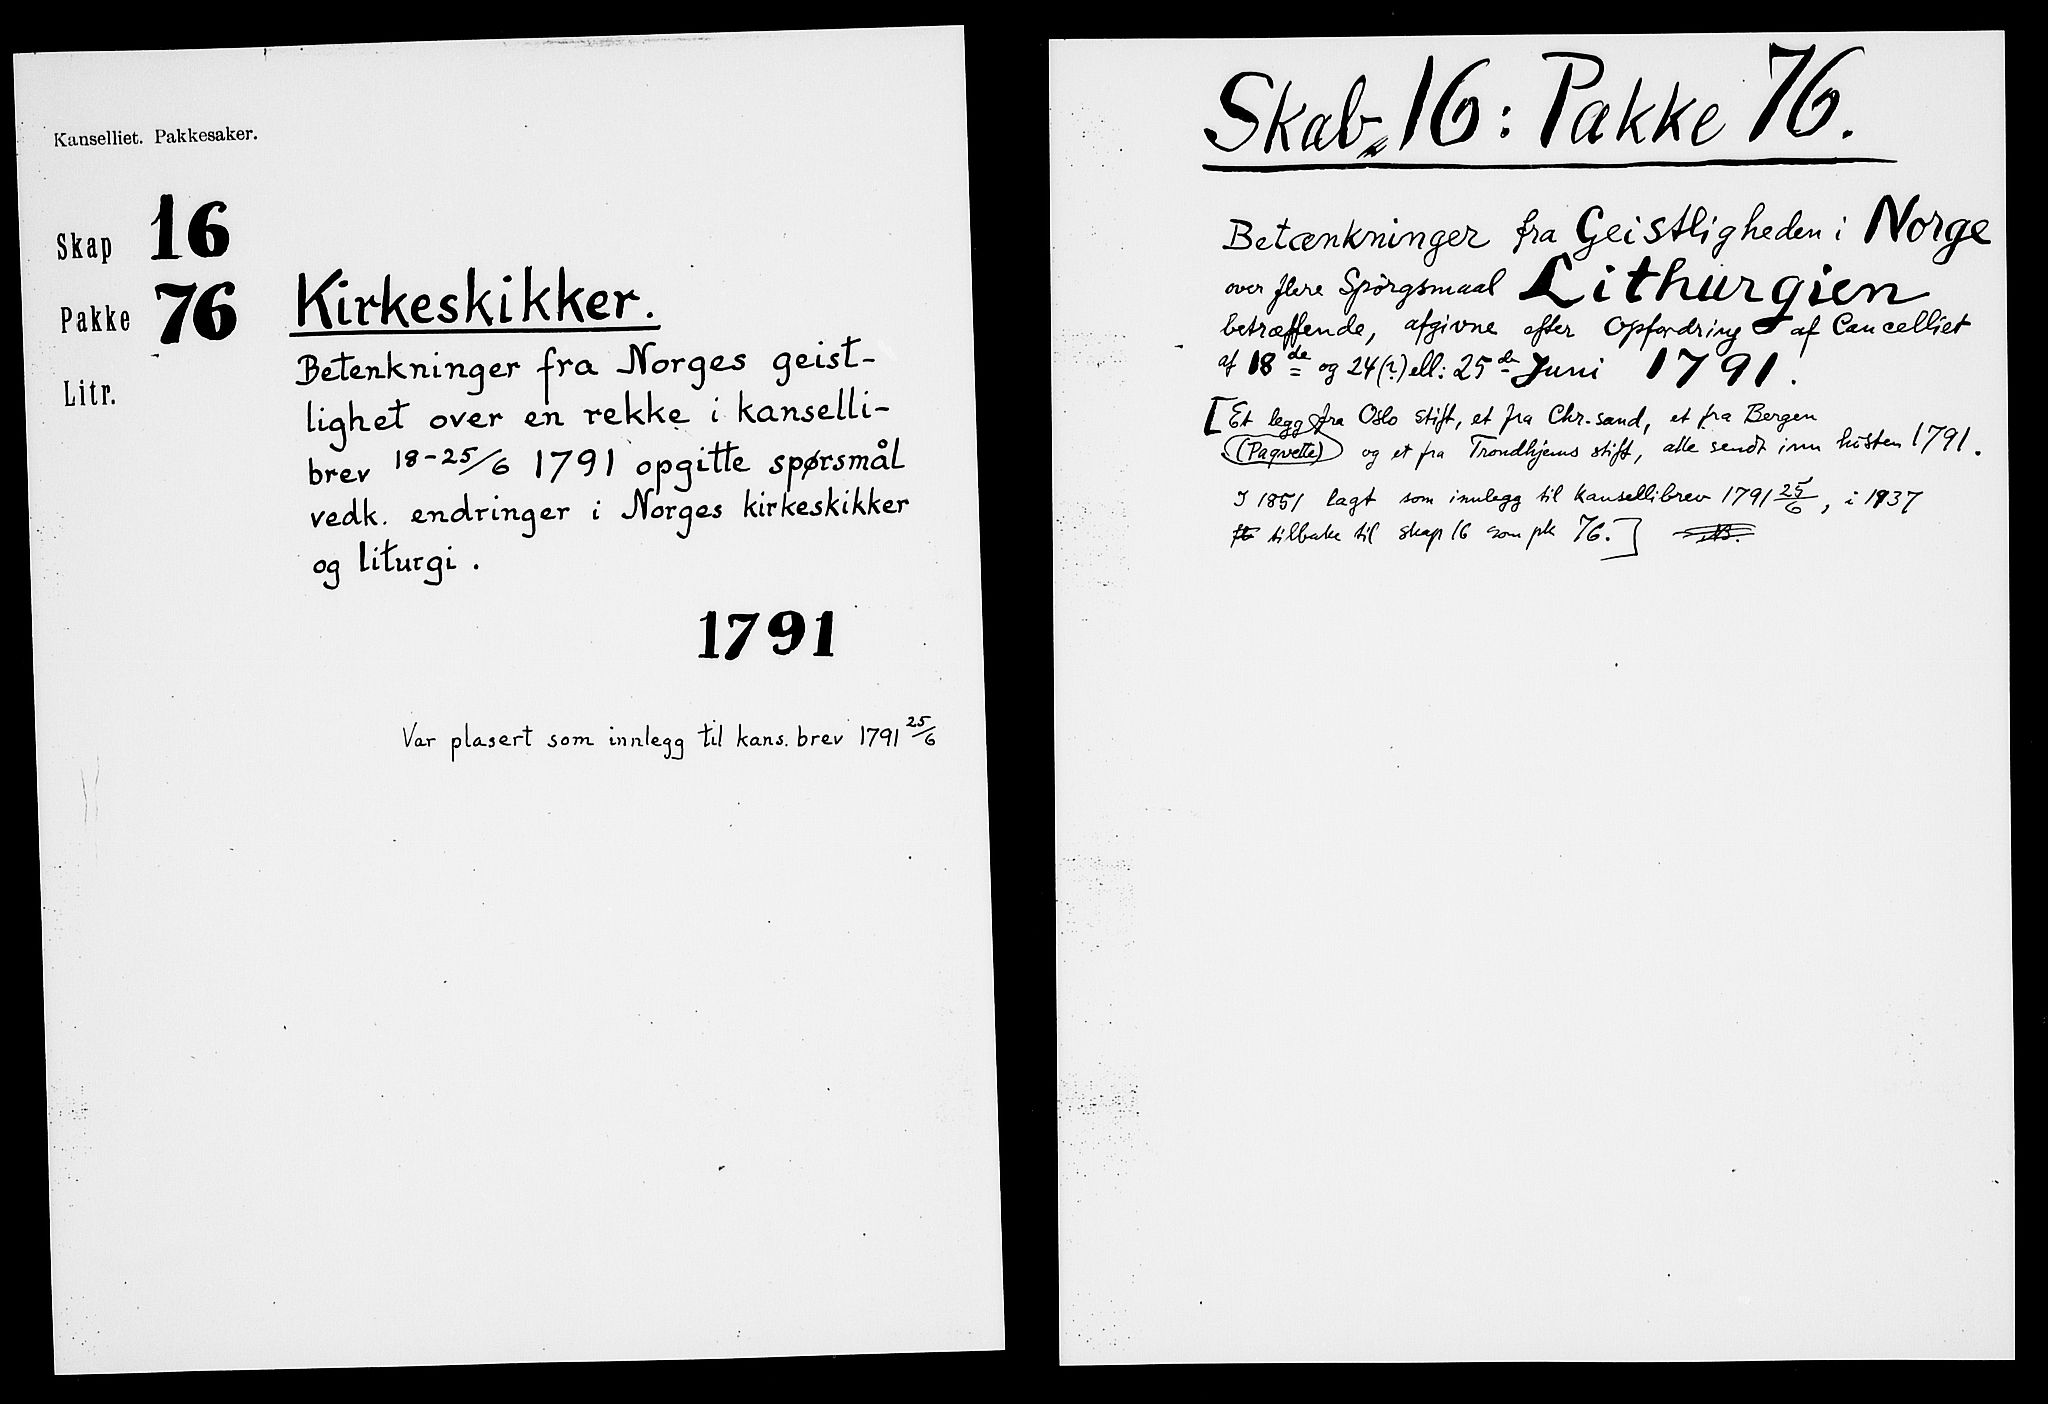 Kanselliet. Pakkesaker.
Skap 16
Pakke 76
Litr.
Kirkeskikker.
Betenkninger fra Norges geist-
lighet over en rekke i kanselli-
brev 18-25/6 1791 opgitte spørsmål
vedk. endringer i Norges kirkeskikker
og liturgi.
1791
Var plasert som innlegg til kans. brev 1791 25/6
Skab 16: Pakke 76.
Betænkninger fra Geistligheden i Norge
over flere Spörgsmaal Lithurgien
betræffende, afgivne efter Opfordring af Cancelliet
af 18de og 24(?) ell: 25de Juni 1791.
[Et legg fra Oslo stift, et fra Chr.sand, et fra Bergen
(Paqvette) og et fra Trondhjems stift, alle sendt inn hösten 1791.
I 1851 lagt som innlegg til kansellibrev 1791 25/6, i 1937
tilbake til skap 16 som pk 76.]